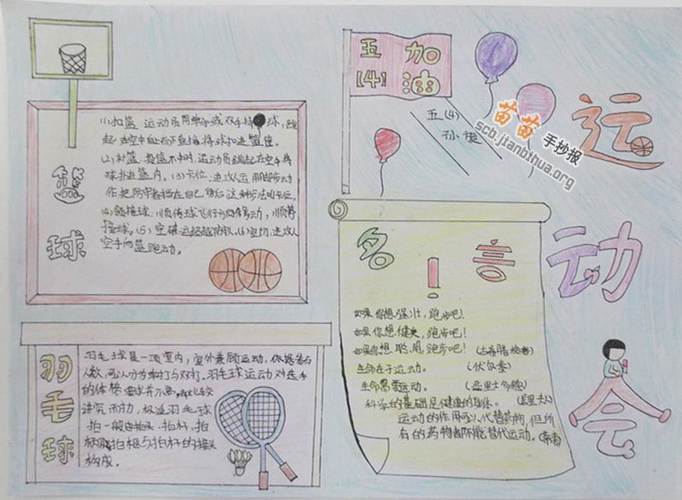 篮球
(1)扣篮 运动员用单手或双手持球,跳
起在空中自上而下直接将球扣进篮筐。
(2)补篮 投篮不中时,运动员跳起在空中将
球补进篮内。(3)卡位 进攻人运用脚步动
作把防守者挡在自己身后这种步法叫卡位。
(4)领接球 顺传球飞行方向移动,顺势
接球。(5)
空手向篮跑动。
五(4)
加油
五(4)
苗苗手抄报
scb.jianbihua.org
运动会
名言!
如果你想强壮,跑步吧!
如果你想健美,跑步吧!
如果你想聪明,跑步吧!
生命在于运动。(伏尔泰)
生命需要运动。(亚里士多德)
科学的基础是健康的身体。(居里夫人)
运动的作用可以代替药物,但所
有的药物都不能替代运动。
羽毛球
羽毛球是一项室内,室外兼顾运动。依据参与
人数,可以分为单打与双打。羽毛球运动对选手
的体格要求并不高,却比较
讲究耐力,极适
拍一般由拍头、拍杆、拍
柄及拍框与拍杆的接头
构成。